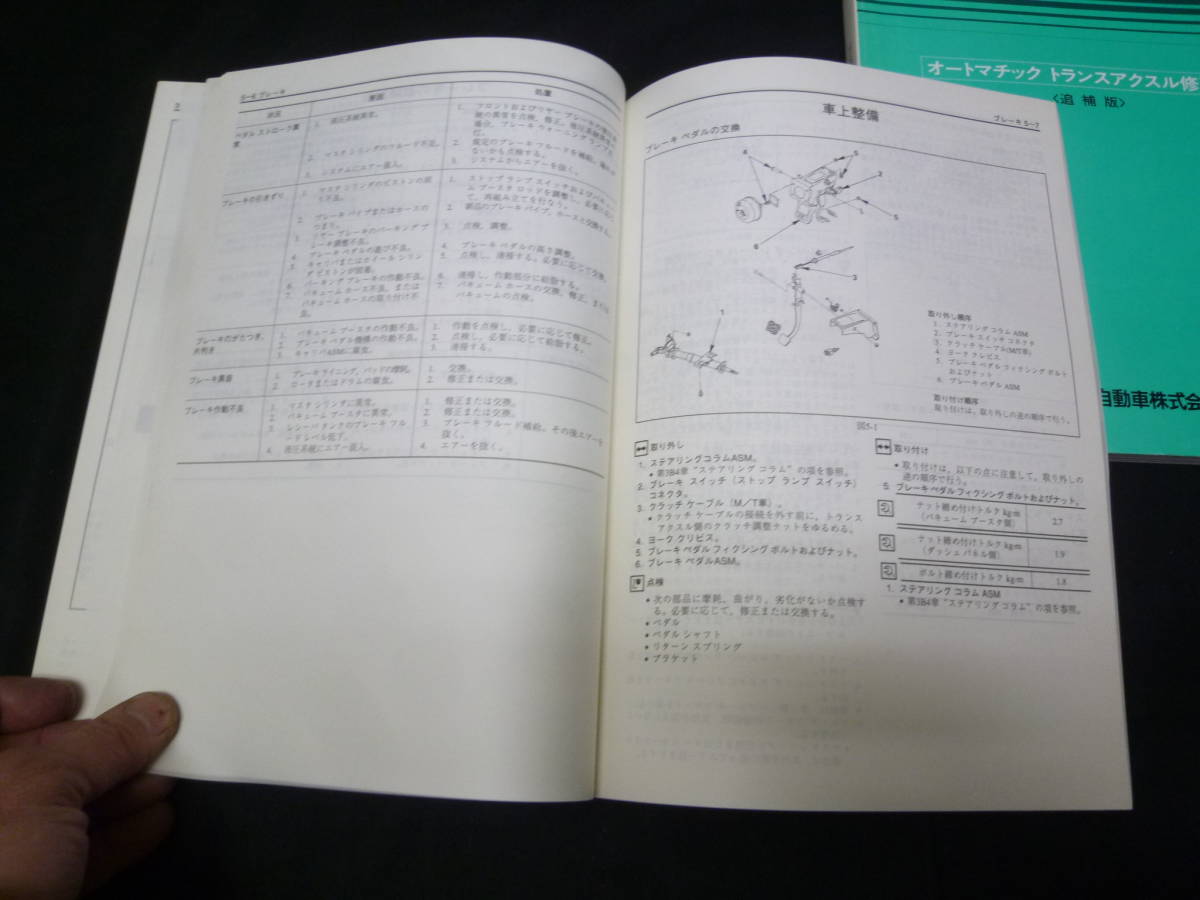 5-6 ブレーキ
状況
原因
処置
ペダル ストローク異常
1. 液圧系統異常。
2. マスタ シリンダのフルード不足。
3. システムにエアー混入。
1. フロントおよびリヤー ブレーキの
3. システムからエアーを抜く。
ブレーキの引きずり
1. マスタ シリンダのピストンの戻り不良。
2. ブレーキ パイプまたはホースのつまり。
3. リヤー ブレーキのパーキング ブレーキ調整不良。
4. ブレーキ ペダルの遊び不良。
5. キャリパまたはホイール シリンダ ピストンが固着。
6. パーキング ブレーキの作動不良。
7. バキューム ホース不良、またはバキューム ホースの取り付け不良。
1. ストップ ランプ スイッチおよびバキューム ブースタ ロッドを調整し、必要に応じて、再組み立てを行なう。
2. 新品のブレーキ パイプ、ホースと交換する。
3. 点検、調整。
4. ブレーキ ペダルの高さ調整。
5. 点検し、清掃する。必要に応じて交換。
6. 清掃し、作動部分に給脂する。
7. バキューム ホースの交換、修正、またはバキュームの点検。
ブレーキのがたつき、片利き
1. バキューム ブースタの作動不良。
2. ブレーキ ペダル機構の作動不良。
3. キャリパASMに腐食。
1. 作動を点検し、必要に応じて修正。
2. 点検し、必要に応じて給脂する。
3. 清掃する。
ブレーキ異音
1. ブレーキ ライニング、パッドの摩耗。
2. ロータまたはドラムの腐食。
1. 交換。
2. 修正または交換。
ブレーキ作動不良
1. マスタ シリンダに異常。
2. バキューム ブースタに異常。
3. レシーバ タンクのブレーキ フルードレベル低下。
4. 液圧系統にエアー混入。
1. 修正または交換。
2. 修正または交換。
3. ブレーキ フルード補給、その後エアーを抜く。
4. エアーを抜く。
車上整備
ブレーキ 5-7
ブレーキ ペダルの交換
取り外し順序
1. ステアリング コラム ASM
2. ブレーキ スイッチ コネクタ
3. クラッチ ケーブル(M/T車)
4. ヨーク クレビス
5. ブレーキ ペダル フィクシング ボルト
およびナット
6. ブレーキ ペダル ASM
取り付け順序
取り付けは、取り外しの逆の順序で行う。
図5-1
取り外し
1. ステアリングコラムASM。
• 第3B4章“ステアリング コラム”の項を参照。
2. ブレーキ スイッチ(ストップ ランプ スイッチ)
コネクタ。
3. クラッチ ケーブル(M/T車)。
• クラッチ ケーブルの接続を外す前に、トランス
アクスル側のクラッチ調整ナットをゆるめる。
4. ヨーク クリビス。
5. ブレーキ ペダル フィクシング ボルトおよびナット。
6. ブレーキ ペダルASM。
点検
• 次の部品に摩耗、曲がり、劣化がないか点検す
る。必要に応じて、修正または交換する。
• ペダル
• ペダル シャフト
• リターン スプリング
• ブラケット
取り付け
• 取り付けは、以下の点に注意して、取り外しの
逆の順序で行う。
5. ブレーキ ペダル フィクシング ボルトおよびナット。
ナット締め付けトルク kg·m
(バキューム ブースタ側)
2.7
ナット締め付けトルク kg·m
(ダッシュ パネル側)
1.9
ボルト締め付けトルク kg·m
1.8
1. ステアリング コラム ASM
• 第3B4章“ステアリング コラム”の項を参照。
オートマチック トランスアクスル修
〈追 補 版〉
自動車株式会